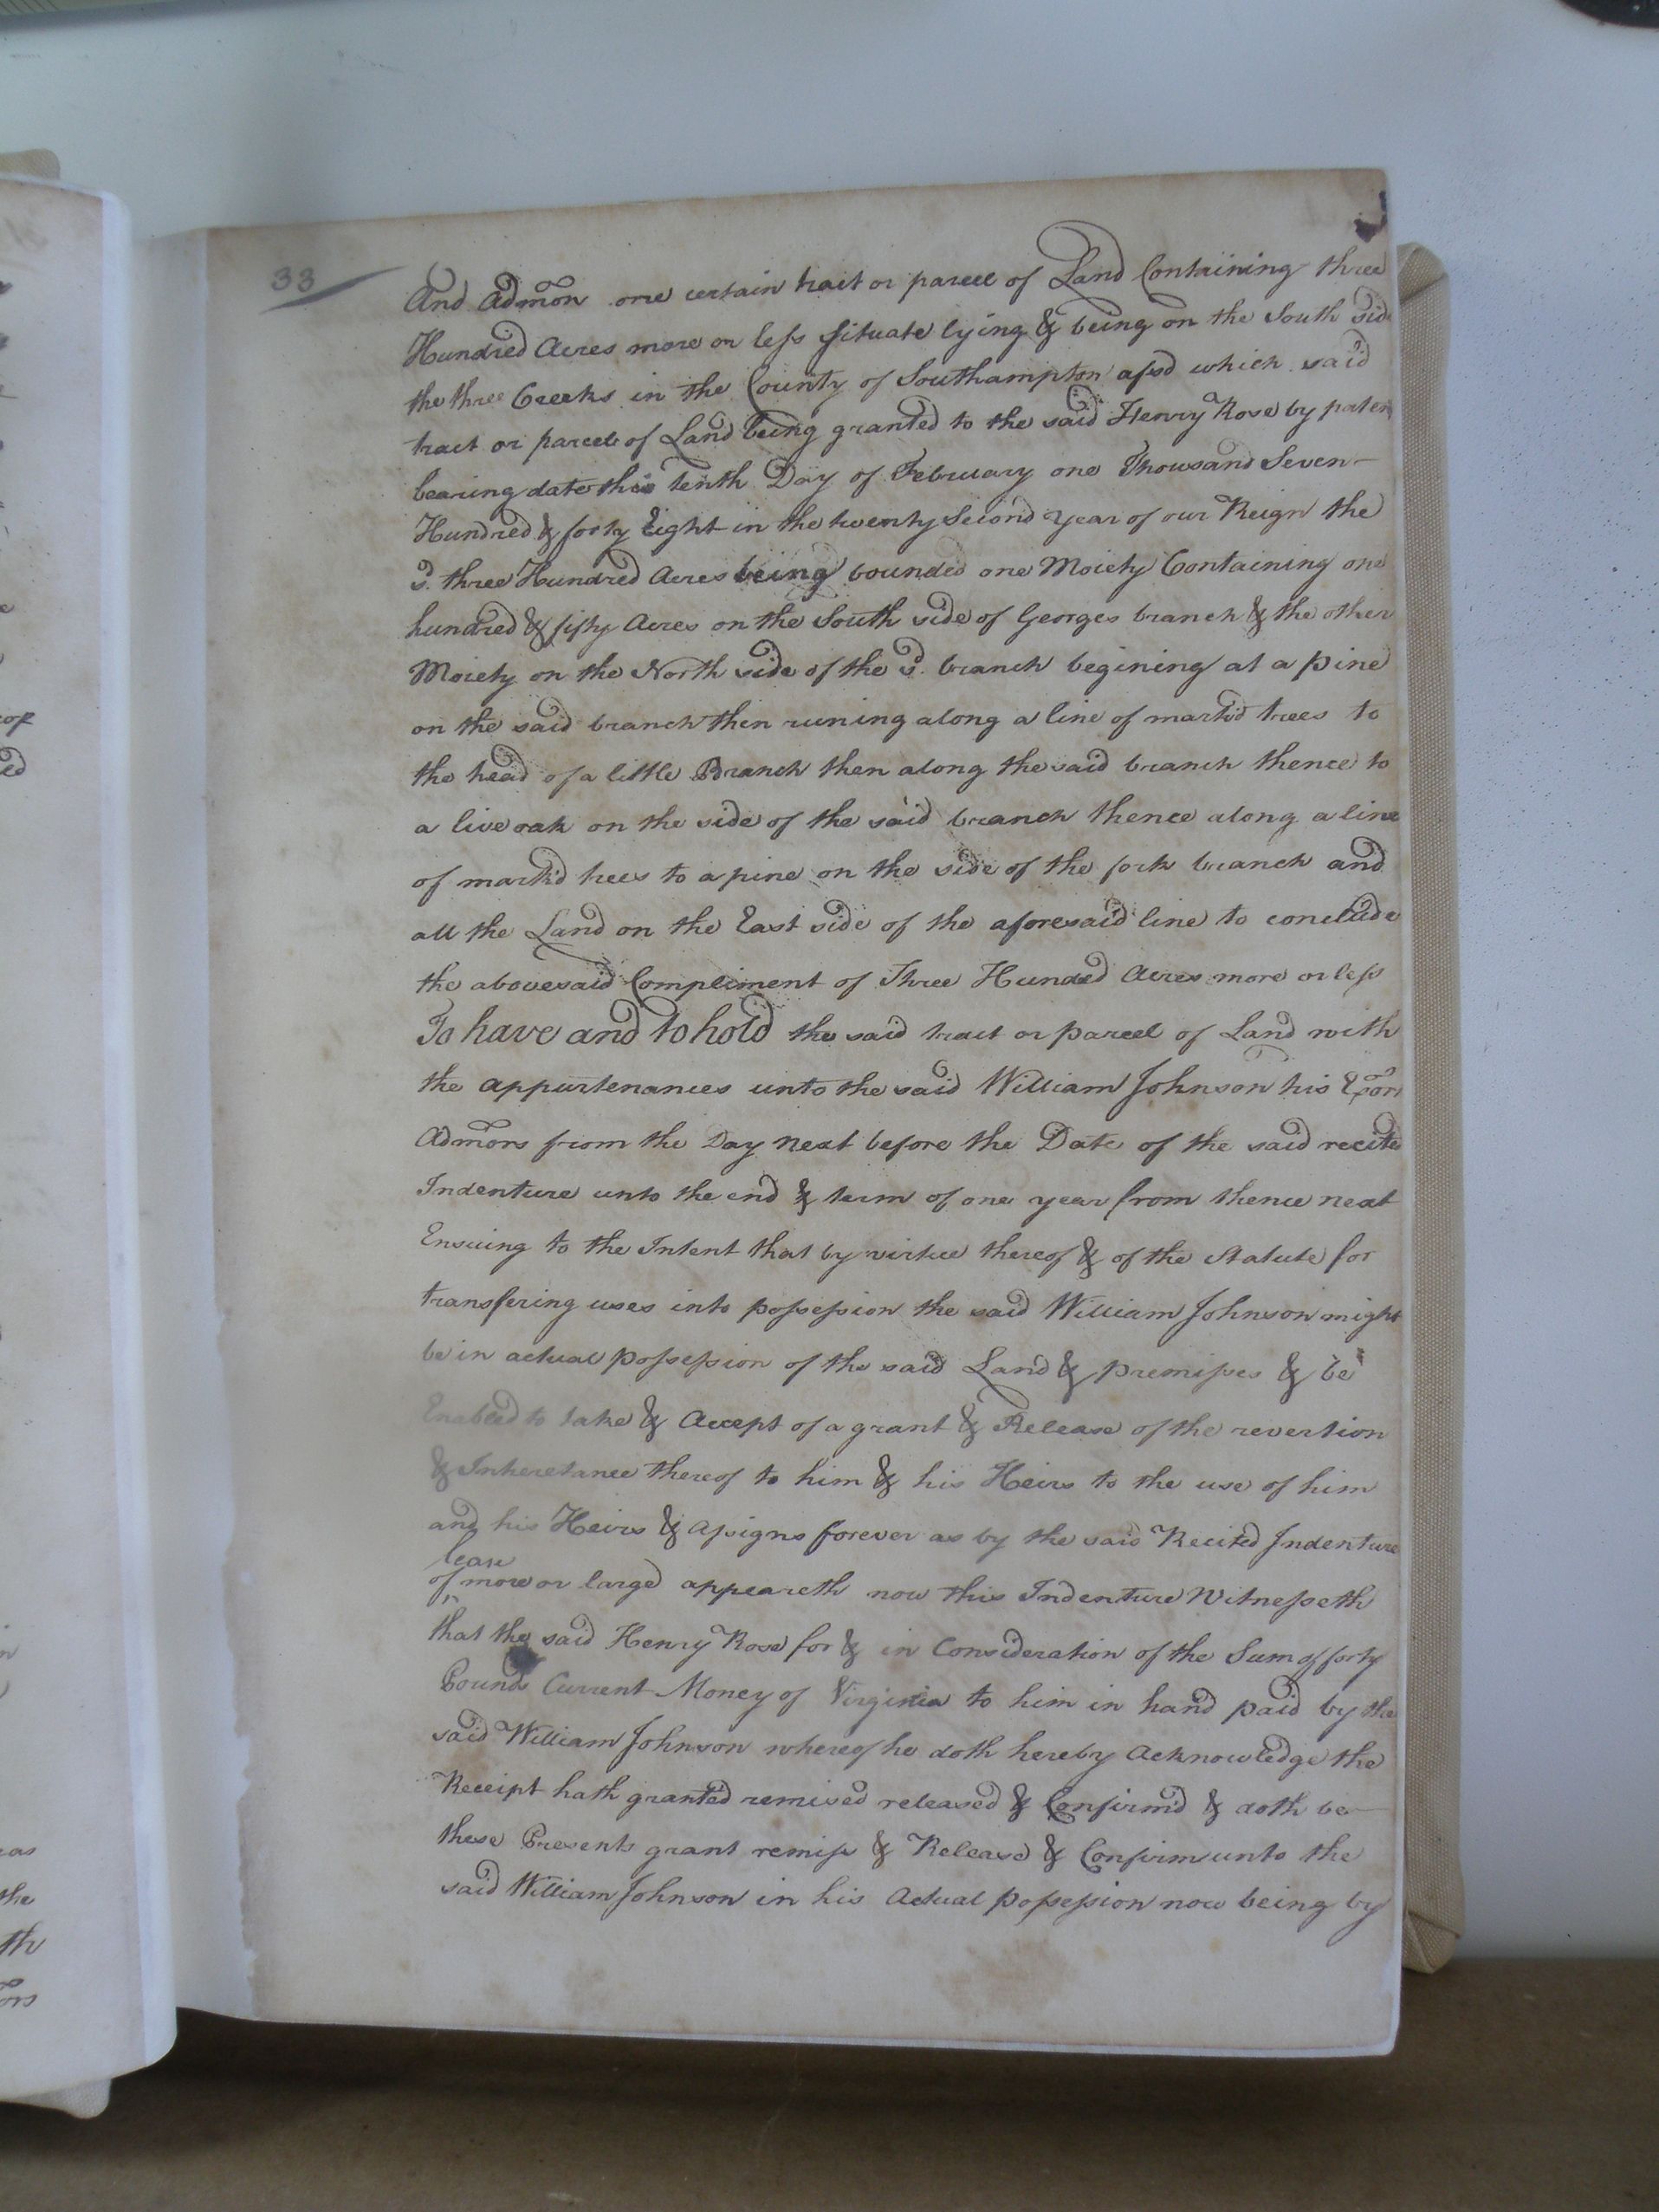 33
And Admon one certain tract or parcel of Land Containing three
Hundred Acres more or less situate lying & being on the South side
the three Creeks in the County of Southampton afsd which said
tract or parcel of Land being granted to the said Henry Rose by paten
bearing date this tenth Day of February one Thousand Seven
Hundred & forty Eight in the twenty Second year of our Reign the
sd. three Hundred Acres being bounded one Moiety Containing one
hundred & fifty Acres on the South side of Georges branch & the other
Moiety on the North side of the sd. branch begining at a pine
on the said branch then runing along a line of markd trees to
the head of a little Branch then along the said branch thence to
a live oak on the side of the said branch thence along a line
of markd trees to a pine on the side of the fork branch and
all the Land on the East side of the aforesaid line to conclude
the abovesaid Compliment of Three Hunded Acres more or less
To have and to hold the said tract or parcel of Land with
the appurtenances unto the said William Johnson his Exors
Admors from the Day next before the Date of the said recited
Indenture unto the end & term of one year from thence next
Ensuing to the Intent that by virtue thereof & of the Statute for
transfering uses into possession the said William Johnson might
be in actual possession of the said Land & premisses & be
Enabled to take & Accept of a grant & Release of the revertion
& Inheretance thereof to him & his Heirs to the use of him
and his Heirs & assigns forever as by the said Recited Indenture
lease
of more or large appeareth now this Indenture Witnesseth
that the said Henry Rose for & in Consideration of the Sum of forty
Pounds Current Money of Virginia to him in hand paid by the
said William Johnson whereof he doth hereby Acknowledge the
Receipt hath granted remised released & Confirm'd & doth be
these Presents grant remiss & Release & Confirm unto the
said William Johnson in his Actual possession now being by